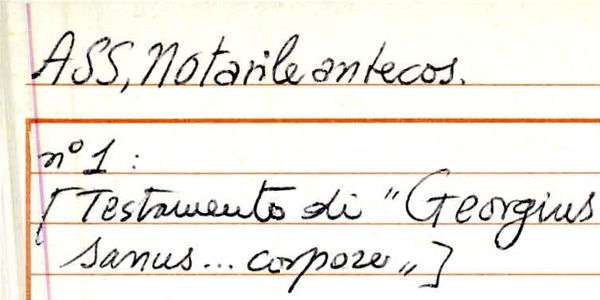 ASS, Notarile antecos.
n° 1 :
[Testamento di "Georgius
sanus... corpore„]